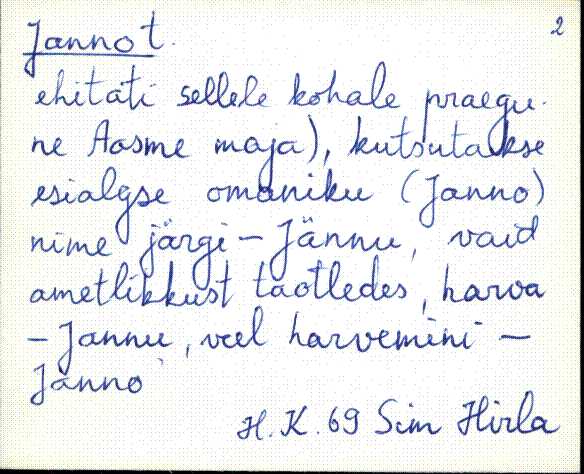 2
Janno t.
ehitati sellele kohale praegu-
ne Aasme maja), kutsutakse
esialgse omaniku (Janno)
nime järgi – Jännu, vaid
ametlikkust taotledes, harva
– Jannu, veel harvemini –
Janno
H. K. 69 Sim Hirla